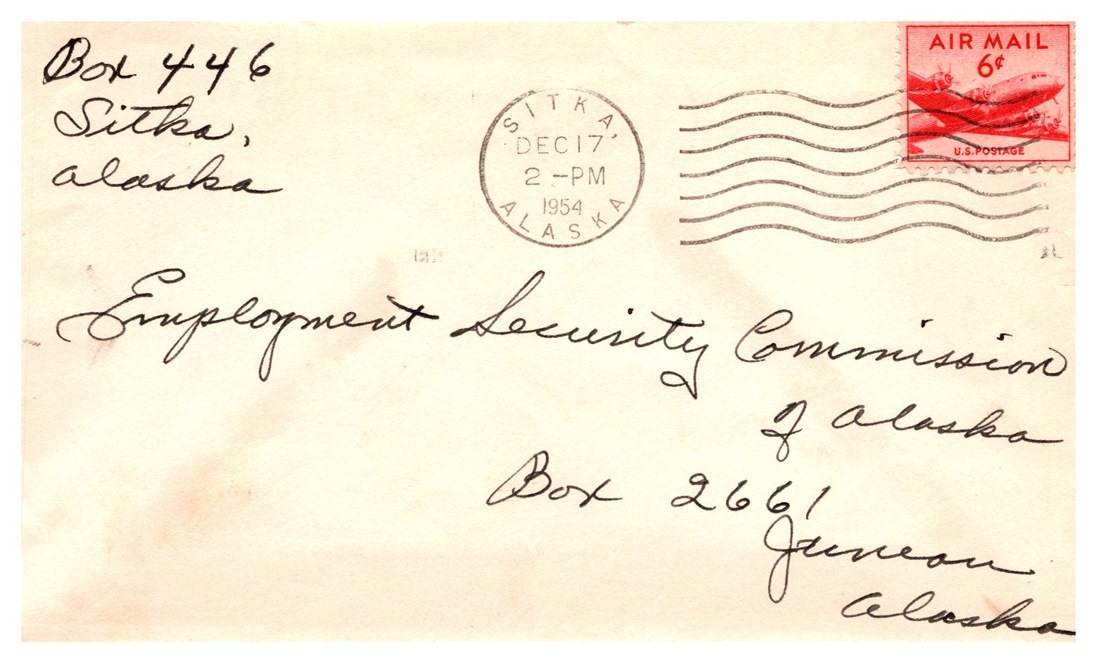 Box 446
Sitka,
Alaska
SITKA,
DEC 17
2 - PM
1954
ALASKA
AIR MAIL
6¢
U.S. POSTAGE
Employment Security Commission
of Alaska
Box 2661
Juneau
Alaska